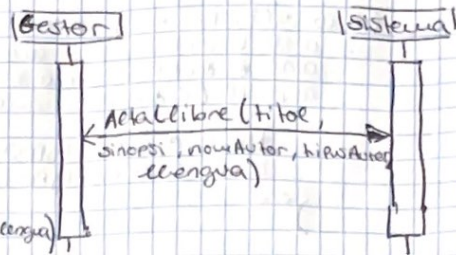 Gestor
Sistema
AltaLlibre (titol,
sinopsi, nomAutor, tipusAutor
llengua)
llengua)